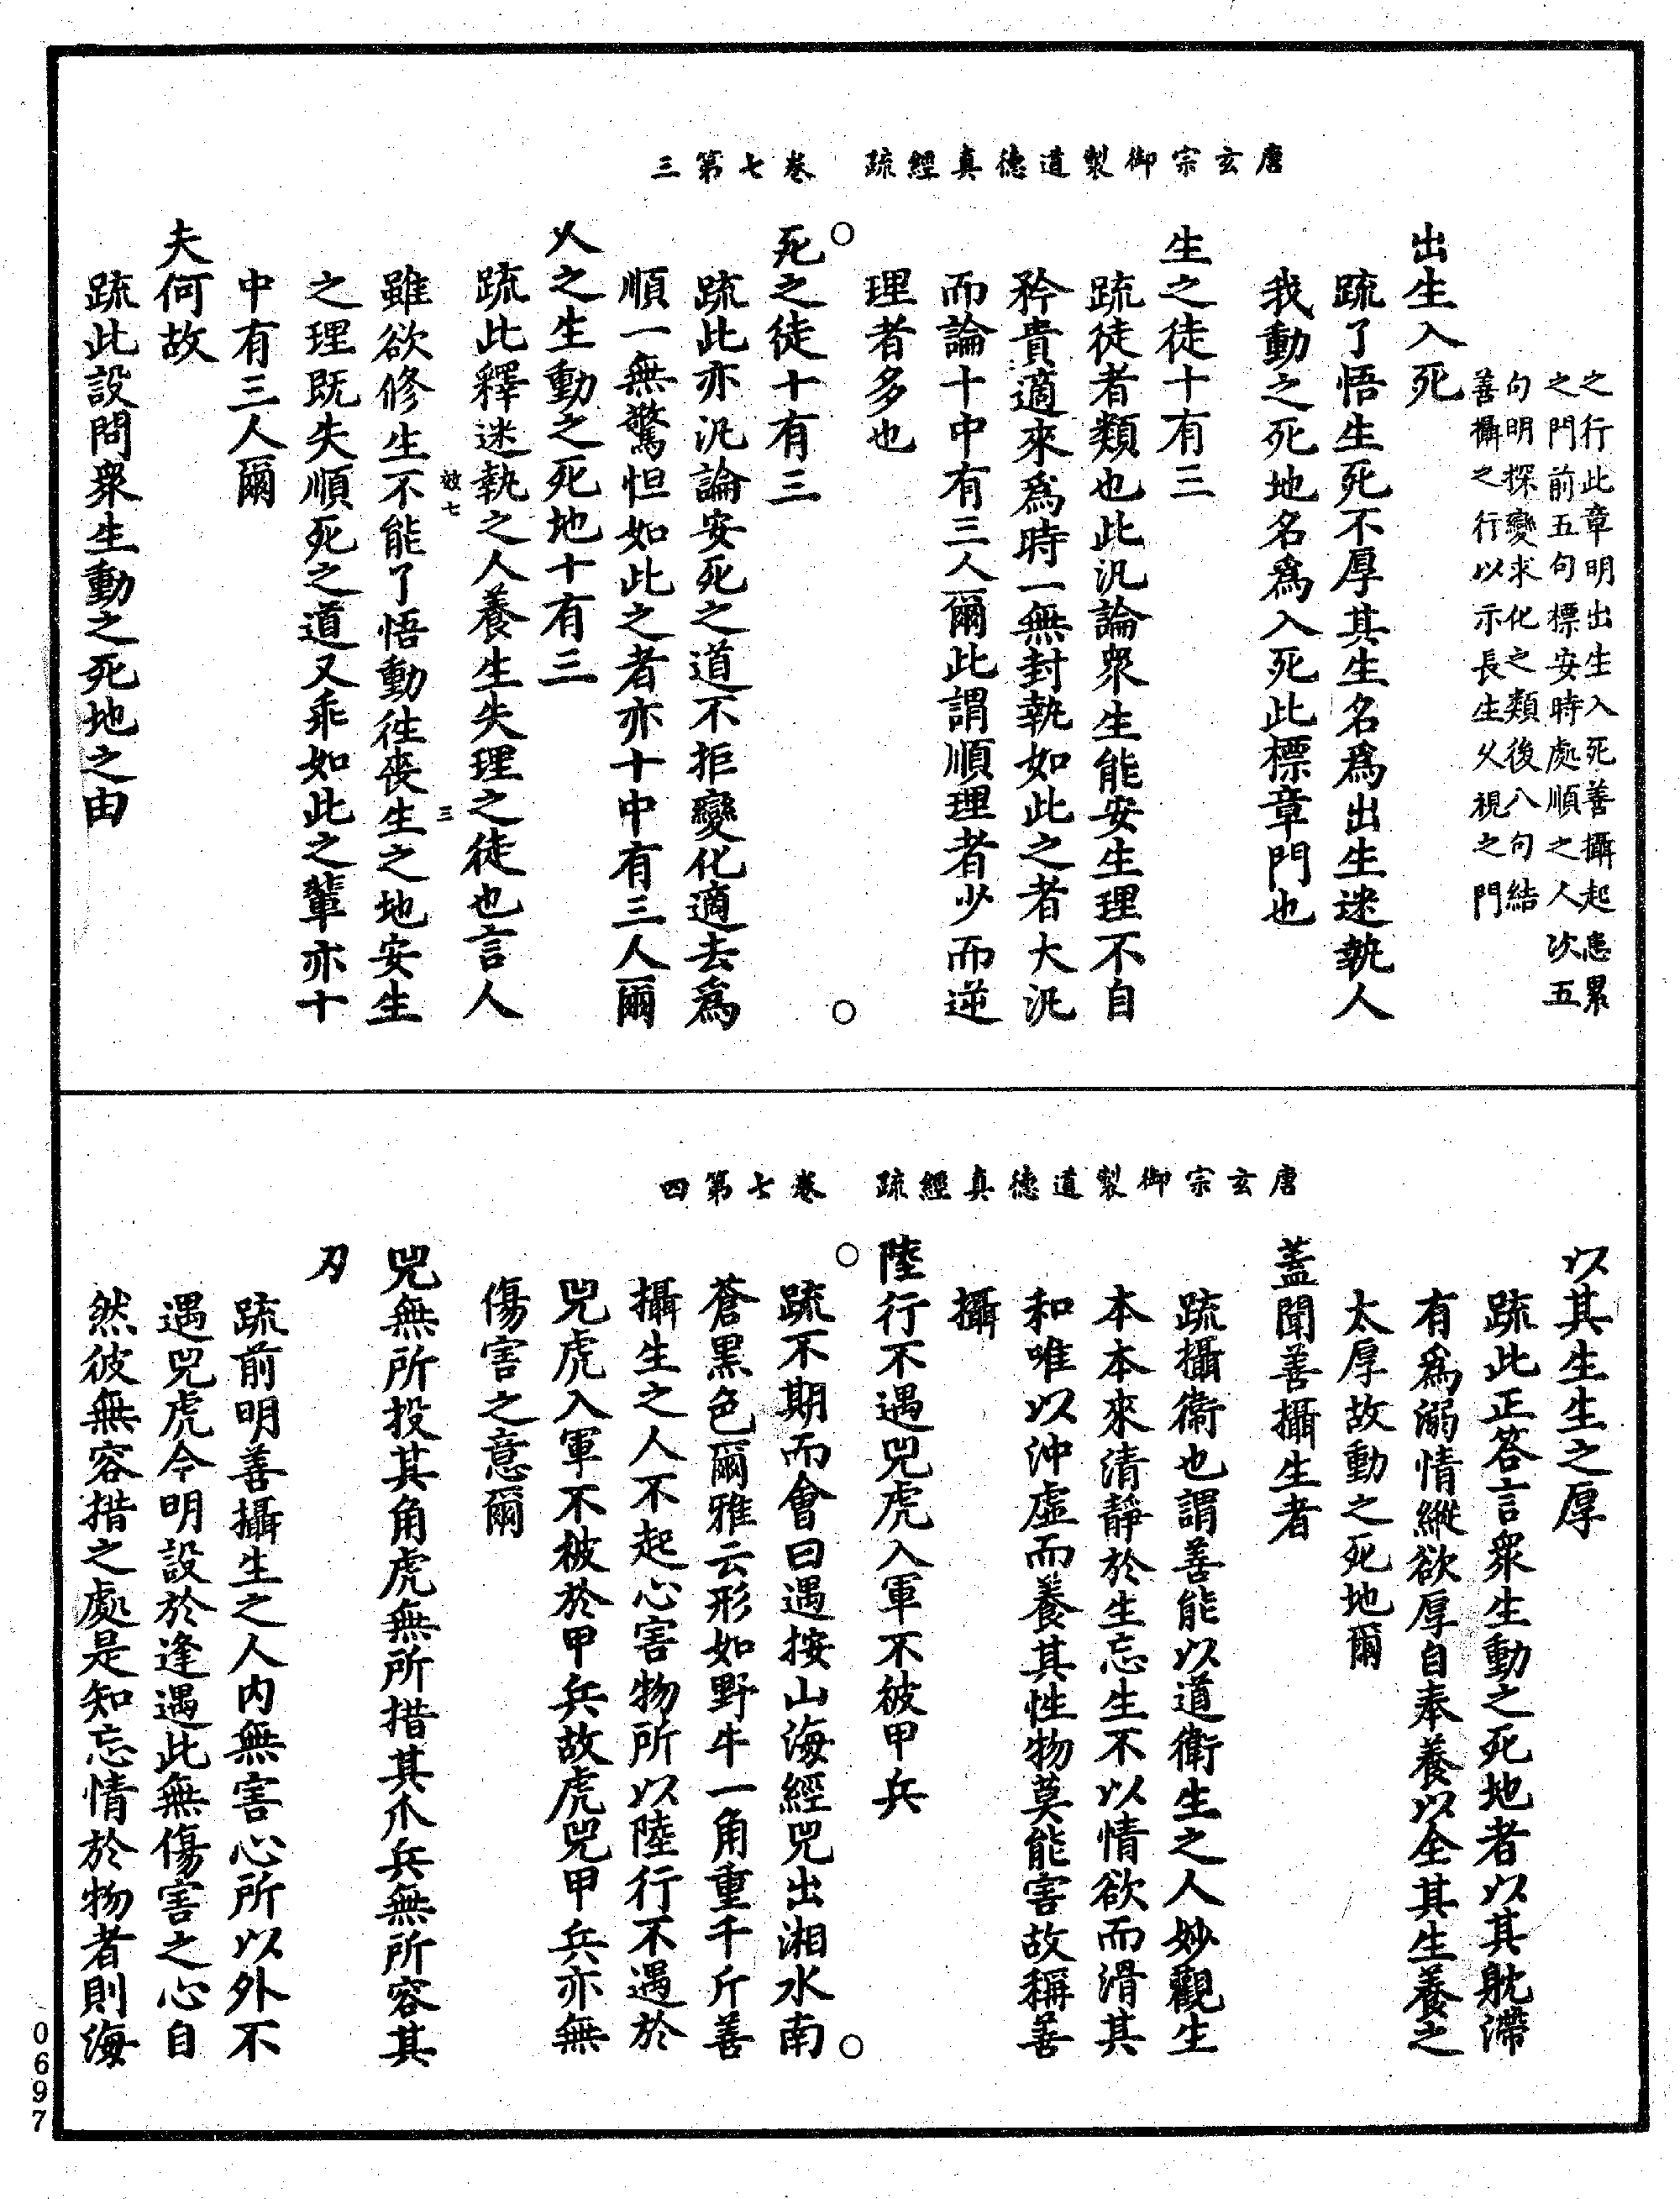 唐玄宗御製道德真經疏　卷七第三
之行此章明出生入死善攝起患累
之門前五句標安時處順之人次五
句明探變求化之類後八句結
善攝之行以示長生久視之門
出生入死
疏了悟生死不厚其生名為出生迷執人
我動之死地名為入死此標章門也
生之徒十有三
疏徒者類也此汎論眾生能安生理不自
矜貴適來為時一無封執如此之者大汎
而論十中有三人爾此謂順理者少而逆
理者多也
死之徒十有三
疏此亦汎論安死之道不拒變化適去為
順一無驚怛如此之者亦十中有三人爾
人之生動之死地十有三
疏此釋迷執之人養生失理之徒也言人
效七　三
雖欲修生不能了悟動徃喪生之地安生
之理既失順死之道又乖如此之輩亦十
中有三人爾
夫何故
疏此設問眾生動之死地之由
唐玄宗御製道德真經疏　卷七第四
以其生生之厚
疏此正答言眾生動之死地者以其躭滯
有為溺情縱欲厚自奉養以全其生養之
太厚故動之死地爾
蓋聞善攝生者
疏攝衛也謂善能以道衛生之人妙觀生
本本來清靜於生忘生不以情欲而滑其
和唯以沖虛而養其性物莫能害故稱善
攝
陸行不遇兕虎入軍不被甲兵
疏不期而會曰遇按山海經兕出湘水南
蒼黑色爾雅云形如野牛一角重千斤善
攝生之人不起心害物所以陸行不遇於
兕虎入軍不被於甲兵故虎兕甲兵亦無
傷害之意爾
兕無所投其角虎無所措其爪兵無所容其
刃
疏前明善攝生之人內無害心所以外不
遇兕虎今明設於逢遇此無傷害之心自
然彼無容措之處是知忘情於物者則海
0697